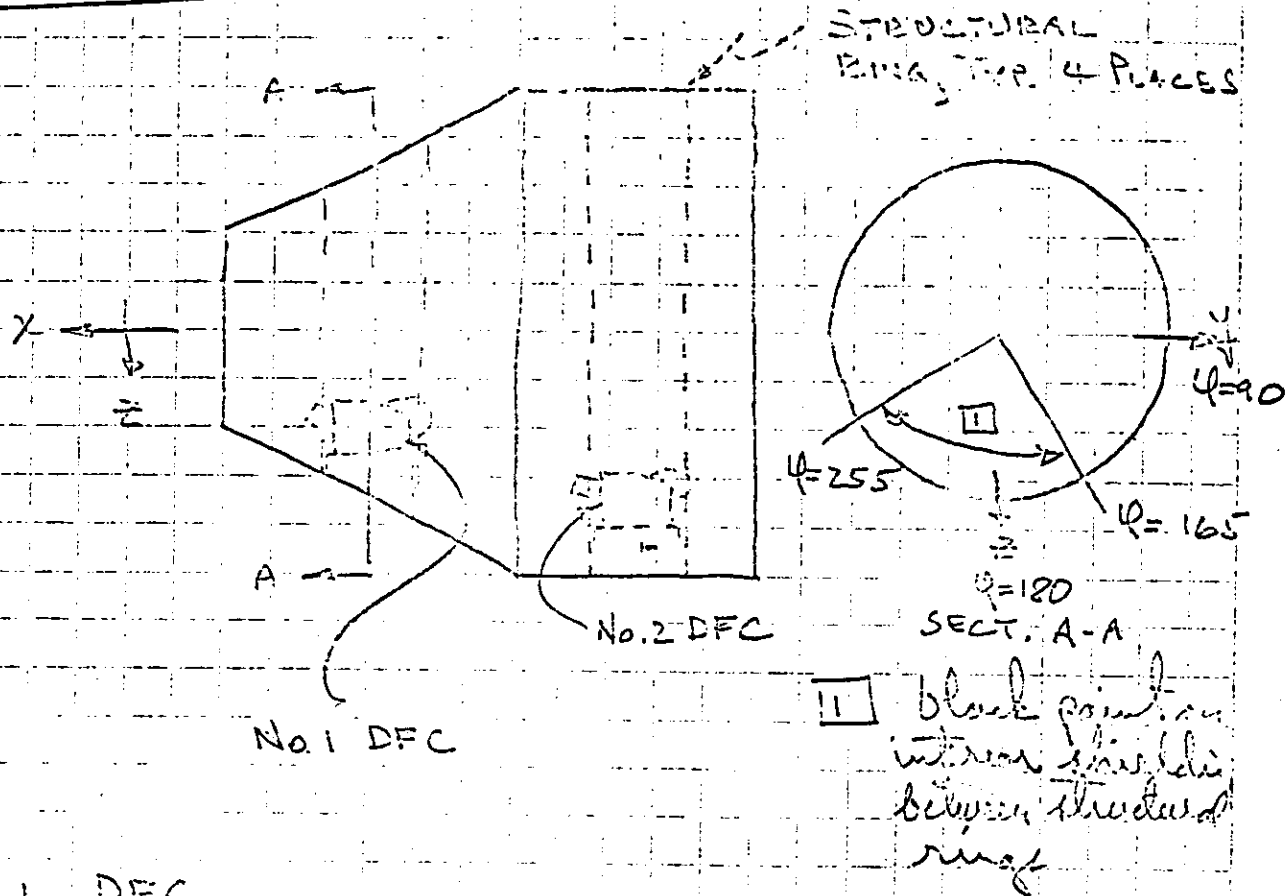 STRUCTURAL
RING, TYP. 4 PLACES
A
X
Z
A
No. 2 DFC
No. 1 DFC
Y
φ=90
1
φ=255
φ=165
Z
φ=180
SECT. A-A
1 black paint on
interior shieldin
between structural
rings
1 DFC